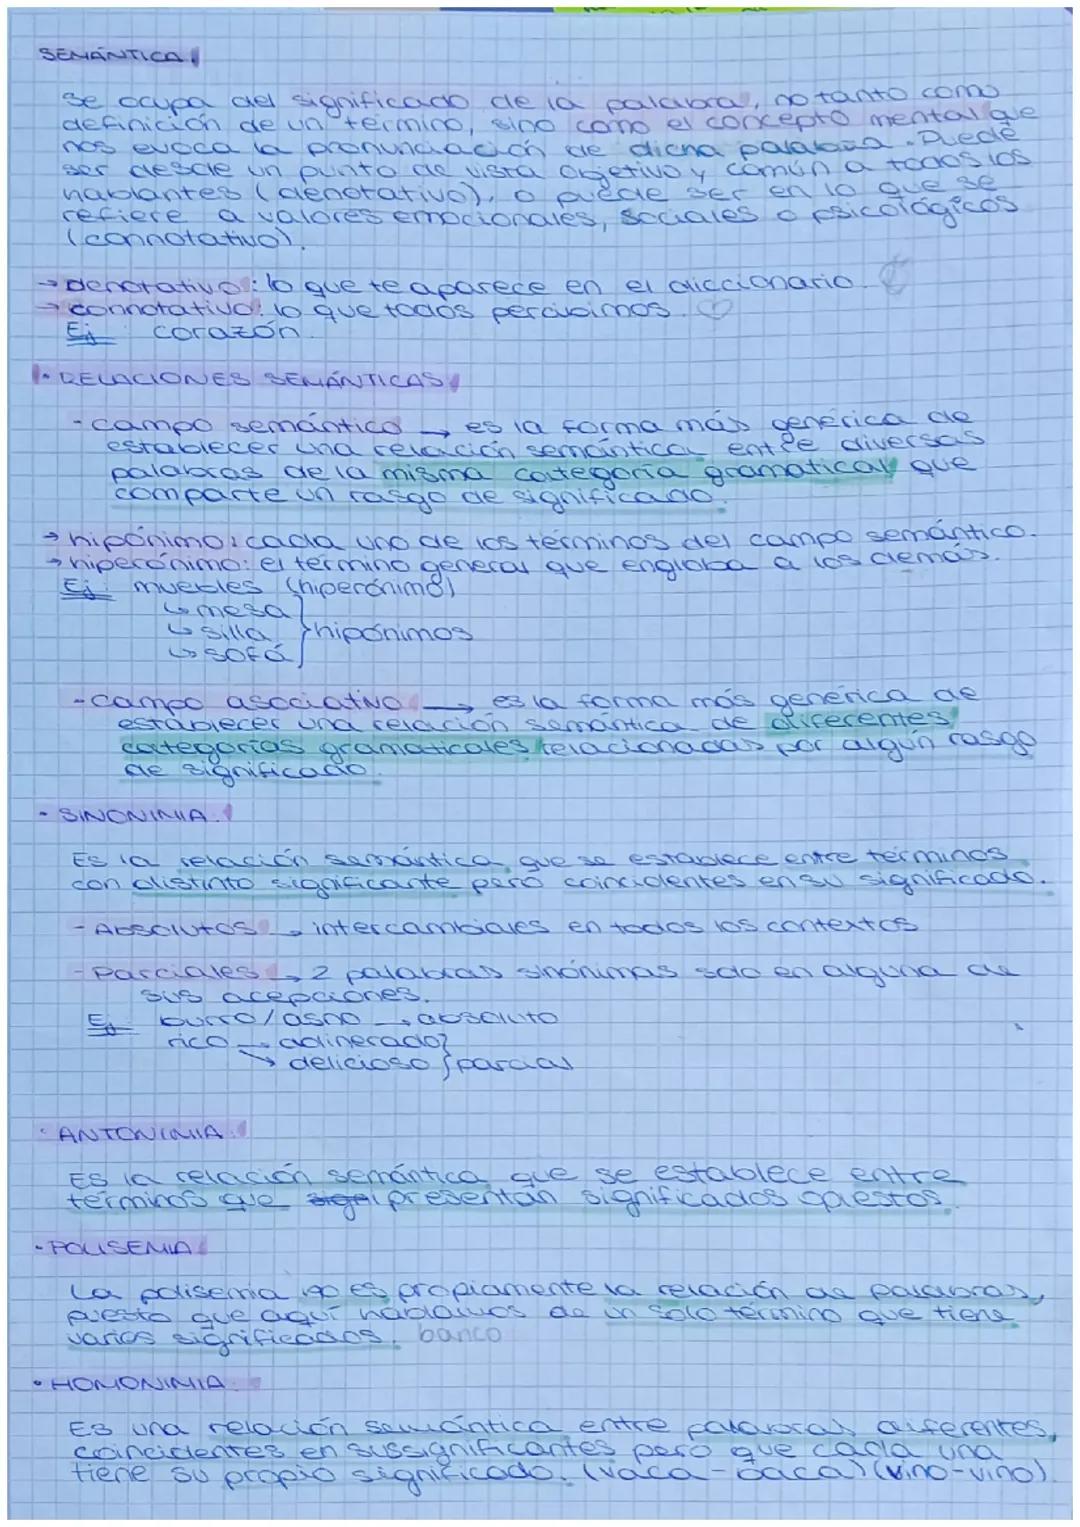 SEMÁNTICA
se ocupa del significado de la palabra, no tanto como
definición de un término, sino como el concepto mental que
nos evoca la pronunciación de dicha palabra. Puede
ser desde un punto de vista objetivo y común a todos los
hablantes (denotativo), o puede ser en lo que se
refiere a valores emocionales, sociales o psicológicos
(connotativo).
→ denotativo: lo que te aparece en el diccionario.
→ connotativo: lo que todos percibimos.
Ej: corazón.
• RELACIONES SEMÁNTICAS
- campo semántico → es la forma más genérica de
establecer una relación semántica entre diversas
palabras de la misma categoría gramatical que
comparte un rasgo de significado.
→ hipónimo: cada uno de los términos del campo semántico.
→ hiperónimo: el término general que engloba a los demás.
Ej: muebles (hiperónimo)
↳ mesa
↳ silla } hipónimos
↳ sofá
- campo asociativo → es la forma más genérica de
establecer una relación semántica de diferentes
categorías gramaticales relacionadas por algún rasgo
de significado.
• SINONIMIA.
Es la relación semántica que se establece entre términos
con distinto significante pero coincidentes en su significado.
- Absolutos → intercambiales en todos los contextos
- Parciales → 2 palabras sinónimas solo en alguna de
sus acepciones.
Ej: burro/asno → absoluto
rico → adinerado }
→ delicioso } parcial
• ANTONIMIA.
Es la relación semántica que se establece entre
términos que presentan significados opuestos.
• POLISEMIA
La polisemia no es propiamente la relación de palabras,
puesto que aquí hablamos de un solo término que tiene
varios significados. banco
• HOMONIMIA.
Es una relación semántica entre palabras diferentes,
coincidentes en sus significantes pero que cada una
tiene su propio significado. (vaca-baca) (vino-vino).